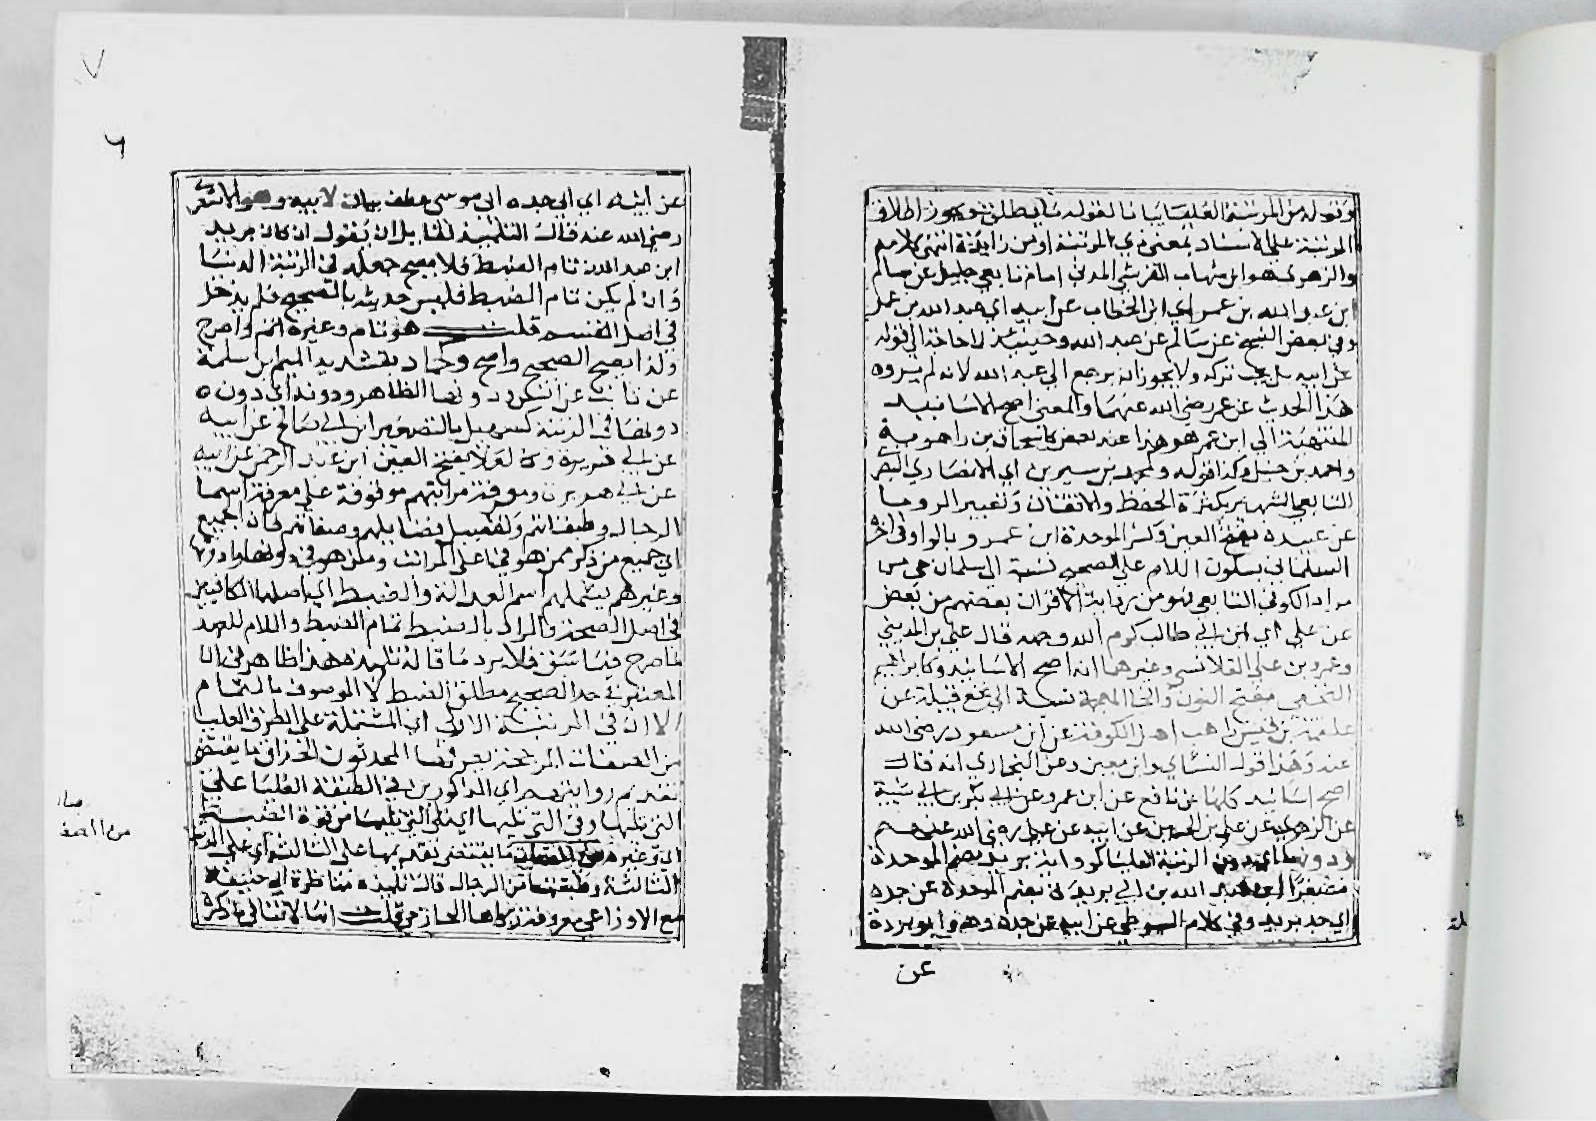 وقوله من المرتبة العليا بيانا لقوله ما يطلق ويجوز اطلاق
المرتبة على الاسناد بمعنى ذي المرتبة او من زايدة انتهى كلامهم
والزهري هو ابن شهاب القرشي المدني امام تابعي جليل عن سالم
ابن عبد الله بن عمر اي ابن الخطاب عن ابيه اي عبد الله بن عمر
وفي بعض النسخ عن سالم عن عبد الله وحينئذ لا حاجة الى قوله
عن ابيه بل يجب تركه ولا يجوز انه يرجع الى عبد الله لانه لم يروه
هذا الحديث عن عمر رضي الله عنهما والمعنى اصح الاسانيد
المنتهية الى ابن عمر هو هذا عند بعض كاسحاق بن راهويه
واحمد بن حنبل وكذا قوله ومحمد بن سيرين اي الانصاري البصر
التابعي الشهير بكثرة الحفظ والاتقان وتعبير الرويا
عن عبيدة بفتح العين وكسر الموحدة ابن عمرو بالواو في اخره
السلماني بسكون اللام على الصحيح نسبة الى سلمان حي من
مراد الكوفي التابعي فهو من رواية الاقران بعضهم من بعض
عن علي اي ابن ابي طالب كرم الله وجهه قال علي بن المديني
وعمرو بن علي الفلانسي وغيرهما انه اصح الاسانيد وكابراهيم
النخعي بفتح النون والخا المعجمة نسبة الى نخع قبيلة عن
علقمة بن قيس راهب اهل الكوفة عن ابن مسعود رضي الله
عنه وهذا قول النسائي وابن معين وعن البخاري انه قال
اصح اسانيد كلها عن نافع عن ابن عمر وعن ابي بكر بن ابي شيبة
عن الزهري عن علي بن الحسين عن ابيه عن علي رضي الله عنهم
ودونها في الرتبة العليا كرواية بريد بضم الموحدة
مصغرا ابن عبد الله بن ابي بردة بضم الموحدة عن جده
اي جد بريد وفي كلام السيوطي عن ابيه عن جده وهو ابو بردة
عن
٧
٦
عن ابيه اي ابي جده ابي موسى عطف بيان لابيه وهو الاشعري
رضي الله عنه قال التلميذ لقايل ان يقول ان كان بريد
ابن عبد الله تام الضبط فلا يصح جعله في الرتبة الدنيا
وان لم يكن تام الضبط فليس حديثه بالصحيح فلم يدخل
في اصل القسم قلت هو تام وغيره اتم واصرح
وله ايصح الصحيح واصح وحماد بتشديد الميم ابن سلمة
عن ثابت عن انس ودونها الظاهر ودونه اي دون
دونها في الرتبة كسهيل بالتصغير ابن ابي صالح عن ابيه
عن ابي هريرة وكالعلا بفتح العين ابن عبد الرحمن عن ابيه
عن ابي هريرة ومعرفة مراتبهم موقوفة على معرفة اسما
الرجال وطبقاتهم وتفصيل فضايلهم وصفاتهم فان الجميع
اي جميع من ذكر ممن هو في اعلى المراتب وممن هو في دونها وما دونها
وغيرهم يشملهم اسم العدالة والضبط اي اصلها الكافيين
في اصل الصحة والمراد بالضبط تمام الضبط واللام للعهد
لما صرح فيما سبق فلا يرد ما قاله تلميذه هذا ظاهر في ان
المعتبر في حد الصحيح مطلق الضبط لا الموصوف بالتمام
الا ان في المرتبة الاولى اي المشتملة على الطرق العليا
من الصفات المرجحة يعرفها المحدثون الحذاق ما يقتضي
تقديم روايتهم اي المذكورين في الطبقة العليا على
التي تليها وفي التي تليها اي تلي التي تليها من قوة الضبط
اي وغيره ما يقتضي تقديمها على الثالثة اي على الدرجة
الثالثة وطبقتها من الرجال قال تلميذه مناظرة ابي حنيفة
مع الاوزاعي معروفة رواها الحازمي قلت انما لا تنافي ما ذكره